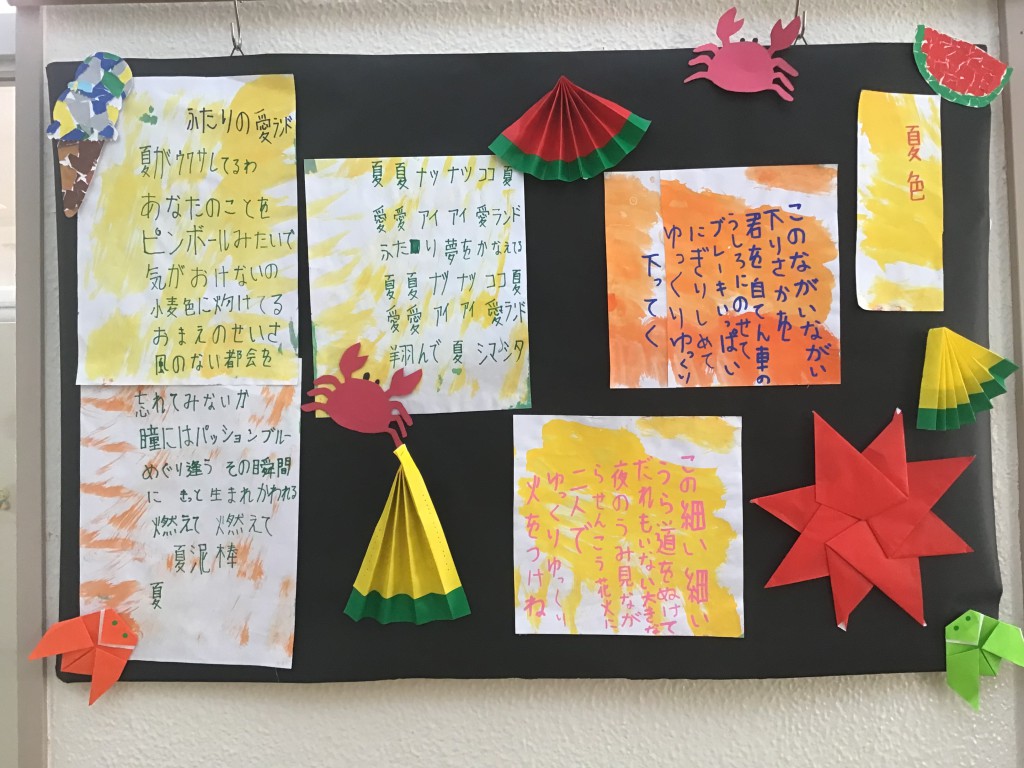 ふたりの愛ランド
夏がウワサしてるわ
あなたのことを
ピンボールみたいで
気がおけないの
小麦色に灼けてる
おまえのせいさ
風のない都会を
忘れてみないか
瞳にはパッションブルー
めぐり逢う その瞬間
に もっと生まれかわれる
燃えて 燃えて
夏泥棒
夏
夏 夏 ナツ ナツ ココ 夏
愛 愛 アイ アイ 愛ランド
ふたり 夢をかなえてる
夏 夏 ナツ ナツ ココ 夏
愛 愛 アイ アイ 愛ランド
翔んで 夏 シマシタ
夏色
このながいながい
下りさかを
君を自てん車の
うしろにのせて
ブレーキいっぱい
にぎりしめて
ゆっくりゆっくり
下ってく
この細い細い
うら道をぬけて
だれもいない大きな
夜のうみ見ながら
らせんこう花火に
二人で
ゆっくりゆっくり
火をつけね